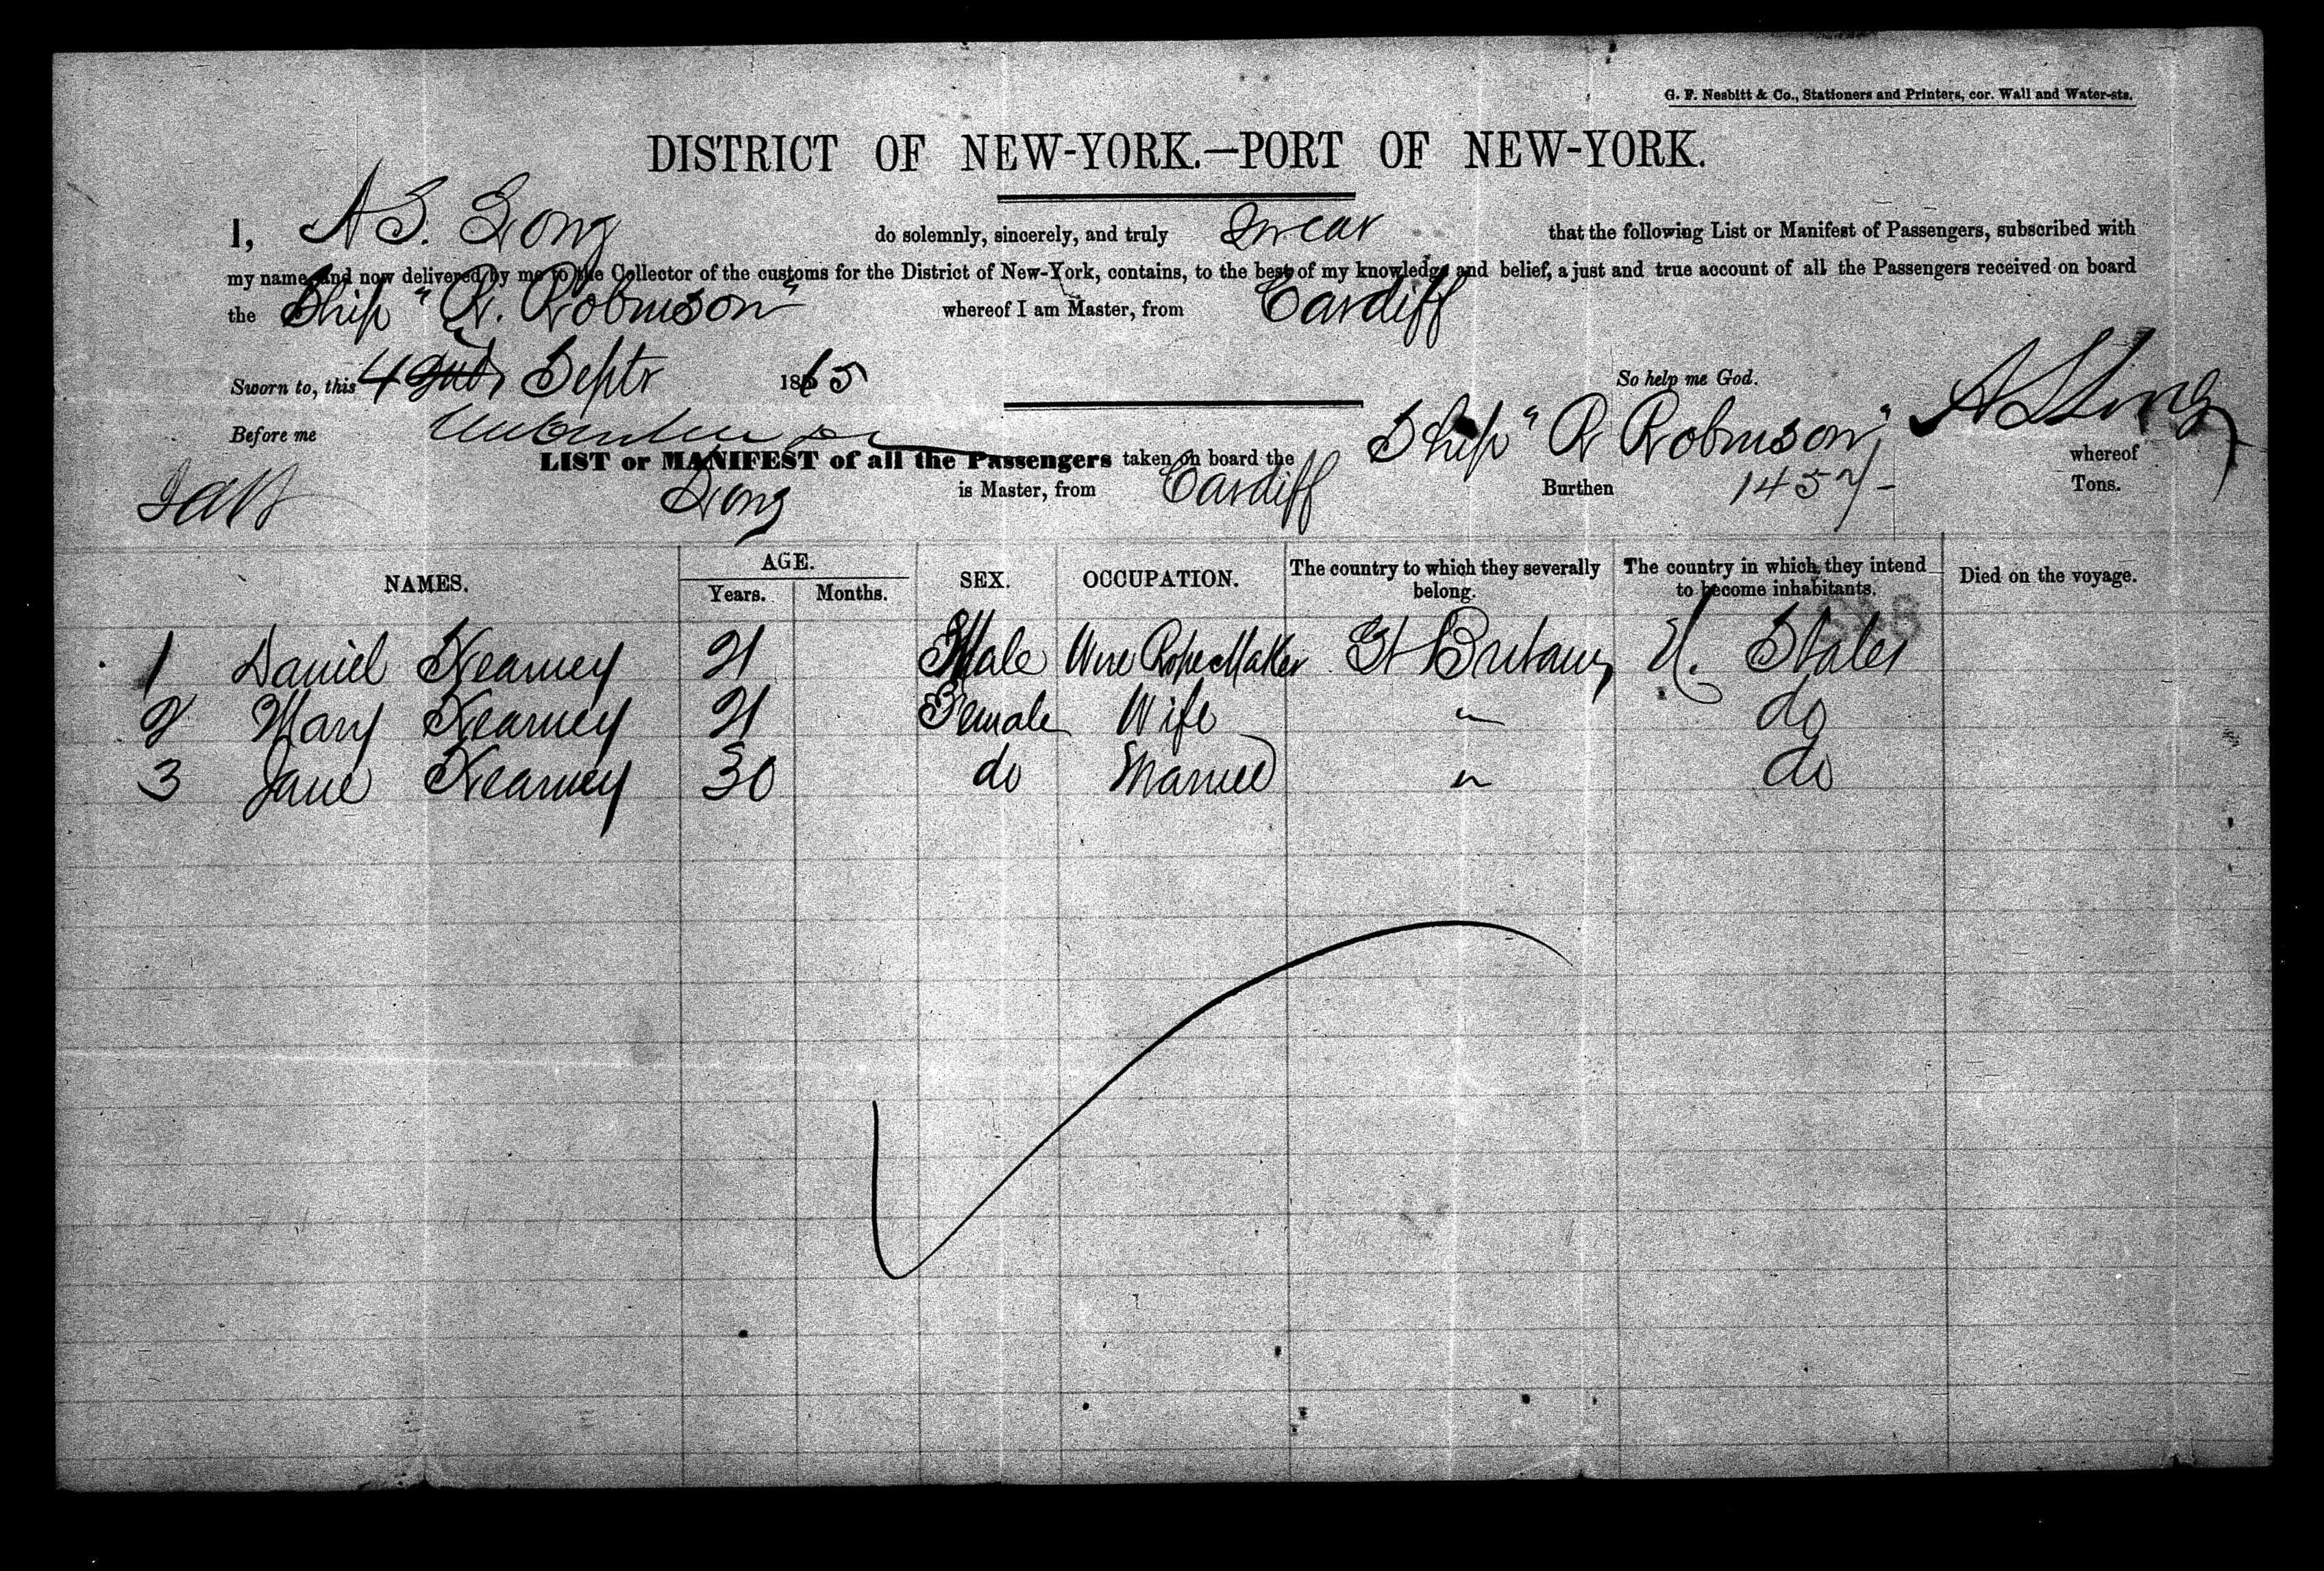 G. F. Nesbitt & Co., Stationers and Printers, cor. Wall and Water-sts.
DISTRICT OF NEW-YORK.—PORT OF NEW-YORK.
I, A S. Long do solemnly, sincerely, and truly Swear that the following List or Manifest of Passengers, subscribed with
my name, and now delivered by me to the Collector of the customs for the District of New-York, contains, to the best of my knowledge and belief, a just and true account of all the Passengers received on board
the Ship "R. Robinson" whereof I am Master, from Cardiff
Sworn to, this 4 Septr 1865 So help me God. A S Long
Before me
LIST or MANIFEST of all the Passengers taken on board the Ship "R Robinson" whereof
Long is Master, from Cardiff Burthen 1457/- Tons.
NAMES. AGE. Years. Months. SEX. OCCUPATION. The country to which they severally belong. The country in which they intend to become inhabitants. Died on the voyage.
1 Daniel Kearney 21 Male Wire Rope Maker Gt Britain U. States
2 Mary Kearney 21 Female Wife " do
3 Jane Kearney 30 do Married " do